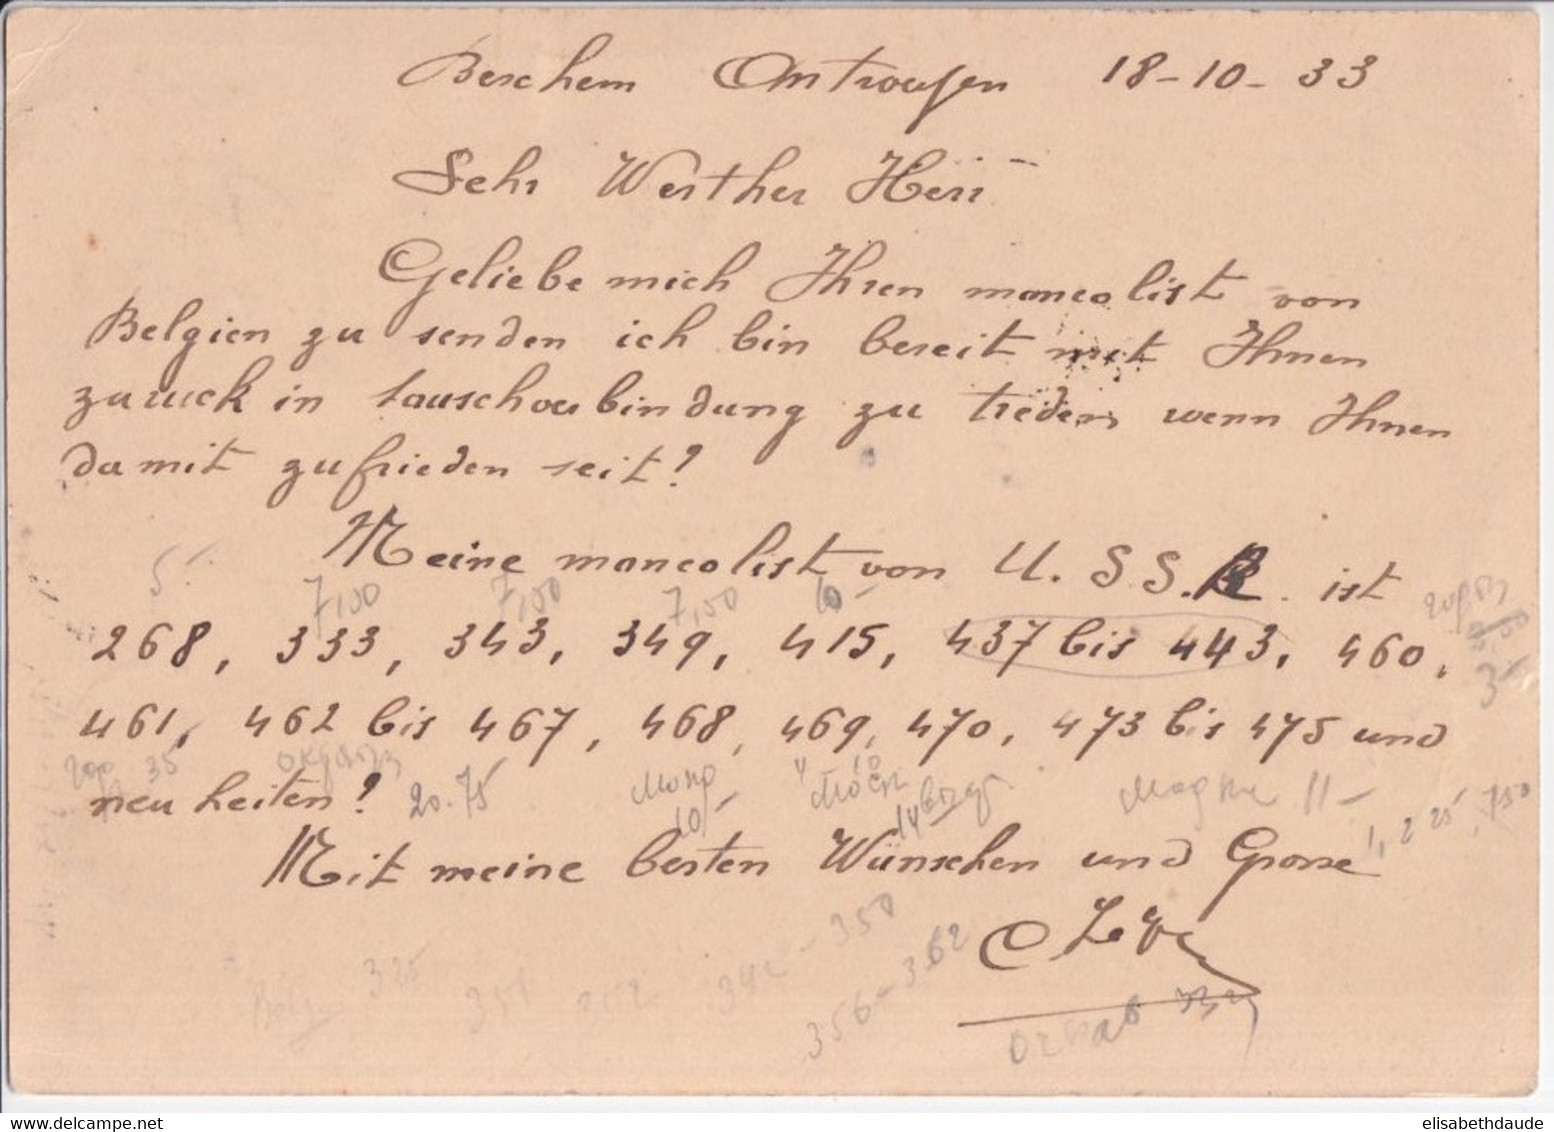 Berchem Antwerpen 18-10-33
Sehr Werther Herr
Geliebe mich Ihren mancolist von
Belgien zu senden ich bin bereit mit Ihnen
zuruck in tauschverbindung zu treden wenn Ihnen
damit zufrieden seit?
Meine mancolist von U.S.S.R. ist
5 7,50 7,50 7,50 10-
268, 333, 343, 349, 415, 437 bis 443, 460,
3-
461, 462 bis 467, 468, 469, 470, 473 bis 475 und
35
neuheiten? 20.75 11-
10- 14 1, 2 25, 750
Mit meine besten Wünschen und Grosse
350
325 351 352 356-362
elisabethdaude